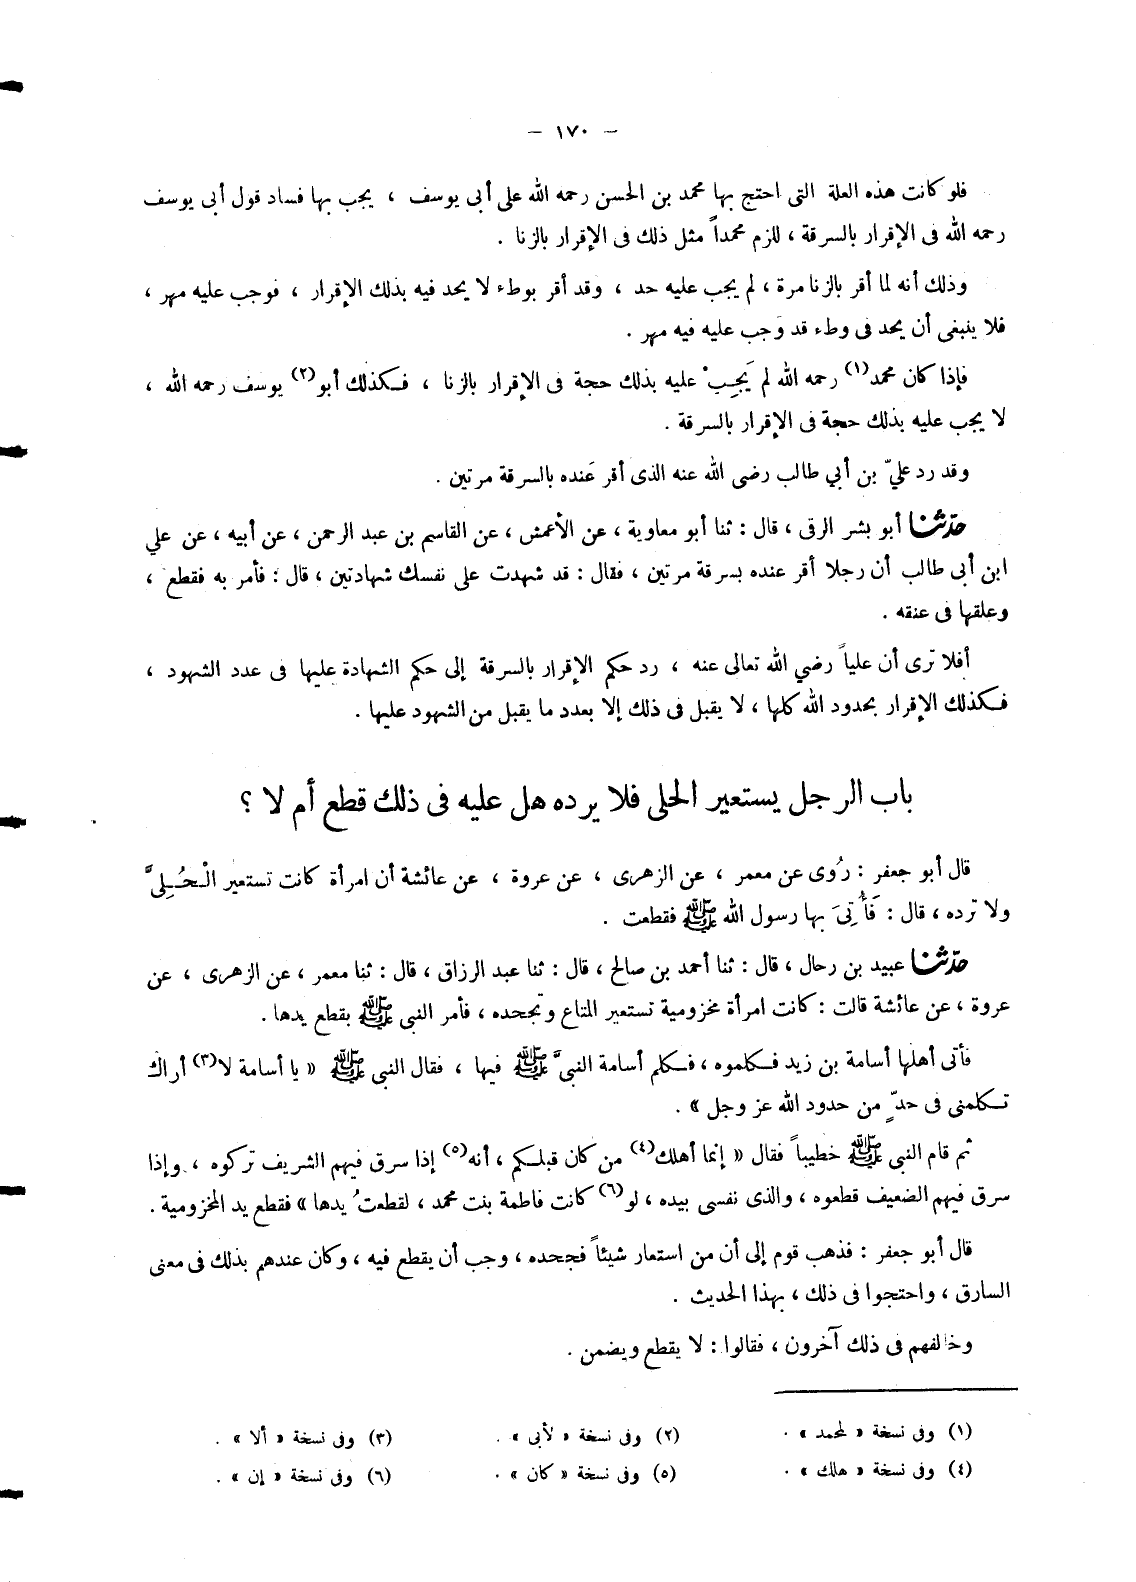 — ١٧٠ —
فلو كانت هذه العلة التى احتج بها محمد بن الحسن رحمه الله على أبى يوسف ، يجب بها فساد قول أبى يوسف
رحمه الله فى الإقرار بالسرقة ، للزم محمداً مثل ذلك فى الإقرار بالزنا .
وذلك أنه لما أقر بالزنا مرة ، لم يجب عليه حد ، وقد أقر بوطء لا يحد فيه بذلك الإقرار ، فوجب عليه مهر ،
فلا ينبغى أن يحد فى وطء قد وَجب عليه فيه مهر .
فإذا كان محمد(١) رحمه الله لم يَجِبْ عليه بذلك حجة فى الإقرار بالزنا ، فكذلك أبو(٢) يوسف رحمه الله ،
لا يجب عليه بذلك حجة فى الإقرار بالسرقة .
وقد رد عليّ بن أبي طالب رضى الله عنه الذى أقر عَنده بالسرقة مرتين .
حدّثنا أبو بشر الرقى ، قال : ثنا أبو معاوية ، عن الأعمش ، عن القاسم بن عبد الرحمن ، عن أبيه ، عن علي
ابن أبى طالب أن رجلا أقر عنده بسرقة مرتين ، فقال : قد شهدت على نفسك شهادتين ، قال : فأمر به فقطع ،
وعلقها فى عنقه .
أفلا تَرى أن علياً رضي الله تعالى عنه ، رد حكم الإقرار بالسرقة إلى حكم الشهادة عليها فى عدد الشهود ،
فكذلك الإقرار بحدود الله كلها ، لا يقبل فى ذلك إلا بعدد ما يقبل من الشهود عليها .
باب الرجل يستعير الحلى فلا يرده هل عليه فى ذلك قطع أم لا ؟
قال أبو جعفر : رُوى عن معمر ، عن الزهرى ، عن عروة ، عن عائشة أن امرأة كانت تستعير الْحُلِىَّ
ولا ترده ، قال : فَأُتِىَ بها رسول الله ﷺ فقطعت .
حدّثنا عبيد بن رحال ، قال : ثنا أحمد بن صالح ، قال : ثنا عبد الرزاق ، قال : ثنا معمر ، عن الزهرى ، عن
عروة ، عن عائشة قالت : كانت امرأة مخزومية تستعير المتاع وتجحده ، فأمر النبى ﷺ بقطع يدها .
فأتى أهلها أسامة بن زيد فكلموه ، فكلم أسامة النبىَّ ﷺ فيها ، فقال النبى ﷺ « يا أسامة لا(٣) أراك
تكلمنى فى حدّ من حدود الله عز وجل » .
ثم قام النبى ﷺ خطيباً فقال « إنما أهلك(٤) من كان قبلكم ، أنه(٥) إذا سرق فيهم الشريف تركوه ، وإذا
سرق فيهم الضعيف قطعوه ، والذى نفسى بيده ، لو(٦) كانت فاطمة بنت محمد ، لقطعتُ يدها » فقطع يد المخزومية .
قال أبو جعفر : فذهب قوم إلى أن من استعار شيئاً فجحده ، وجب أن يقطع فيه ، وكان عندهم بذلك فى معنى
السارق ، واحتجوا فى ذلك ، بهذا الحديث .
وخالفهم فى ذلك آخرون ، فقالوا : لا يقطع ويضمن .
(١) وفى نسخة « لمحمد » . (٢) وفى نسخة « لأبى » . (٣) وفى نسخة « ألا » .
(٤) وفى نسخة « هلك » . (٥) وفى نسخة « كان » . (٦) وفى نسخة « إن » .